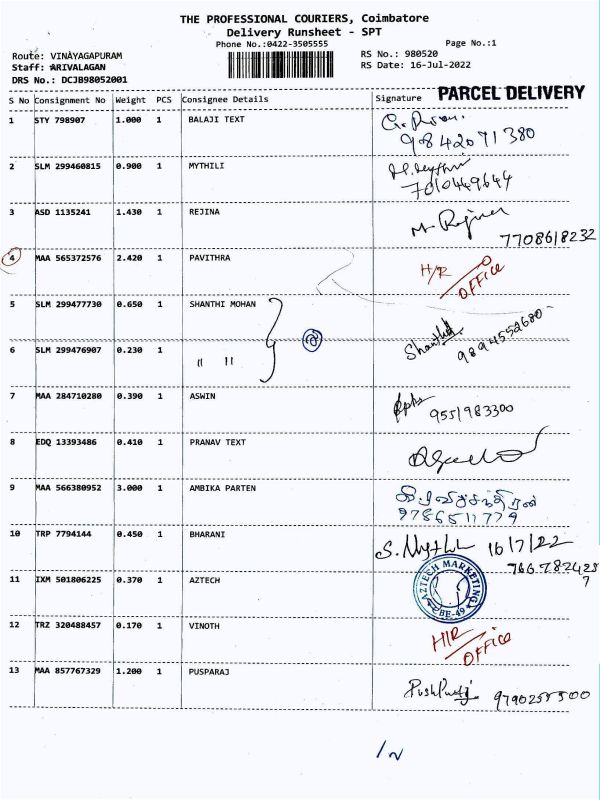 THE PROFESSIONAL COURIERS, Coimbatore
Delivery Runsheet - SPT
Phone No.:0422-3505555
Page No.:1
Route: VINAYAGAPURAM
RS No.: 980520
Staff: ARIVALAGAN
RS Date: 16-Jul-2022
DRS No.: DCJB98052001
S No Consignment No Weight PCS Consignee Details Signature PARCEL DELIVERY
1 STY 798907 1.000 1 BALAJI TEXT
9842071380
2 SLM 299460815 0.900 1 MYTHILI
7010449644
3 ASD 1135241 1.430 1 REJINA
7708618232
4 MAA 565372576 2.420 1 PAVITHRA H/R OFFICE
5 SLM 299477730 0.650 1 SHANTHI MOHAN
9894552680
6 SLM 299476907 0.230 1 " "
7 MAA 284710280 0.390 1 ASWIN
9551983300
8 EDQ 13393486 0.410 1 PRANAV TEXT
9 MAA 566380952 3.000 1 AMBIKA PARTEN
9786511779
10 TRP 7794144 0.450 1 BHARANI 16/7/22
11 IXM 501806225 0.370 1 AZTECH AZTECH MARKETING CBE-49
12 TRZ 320488457 0.170 1 VINOTH H/R OFFICE
13 MAA 857767329 1.200 1 PUSPARAJ
9790255500